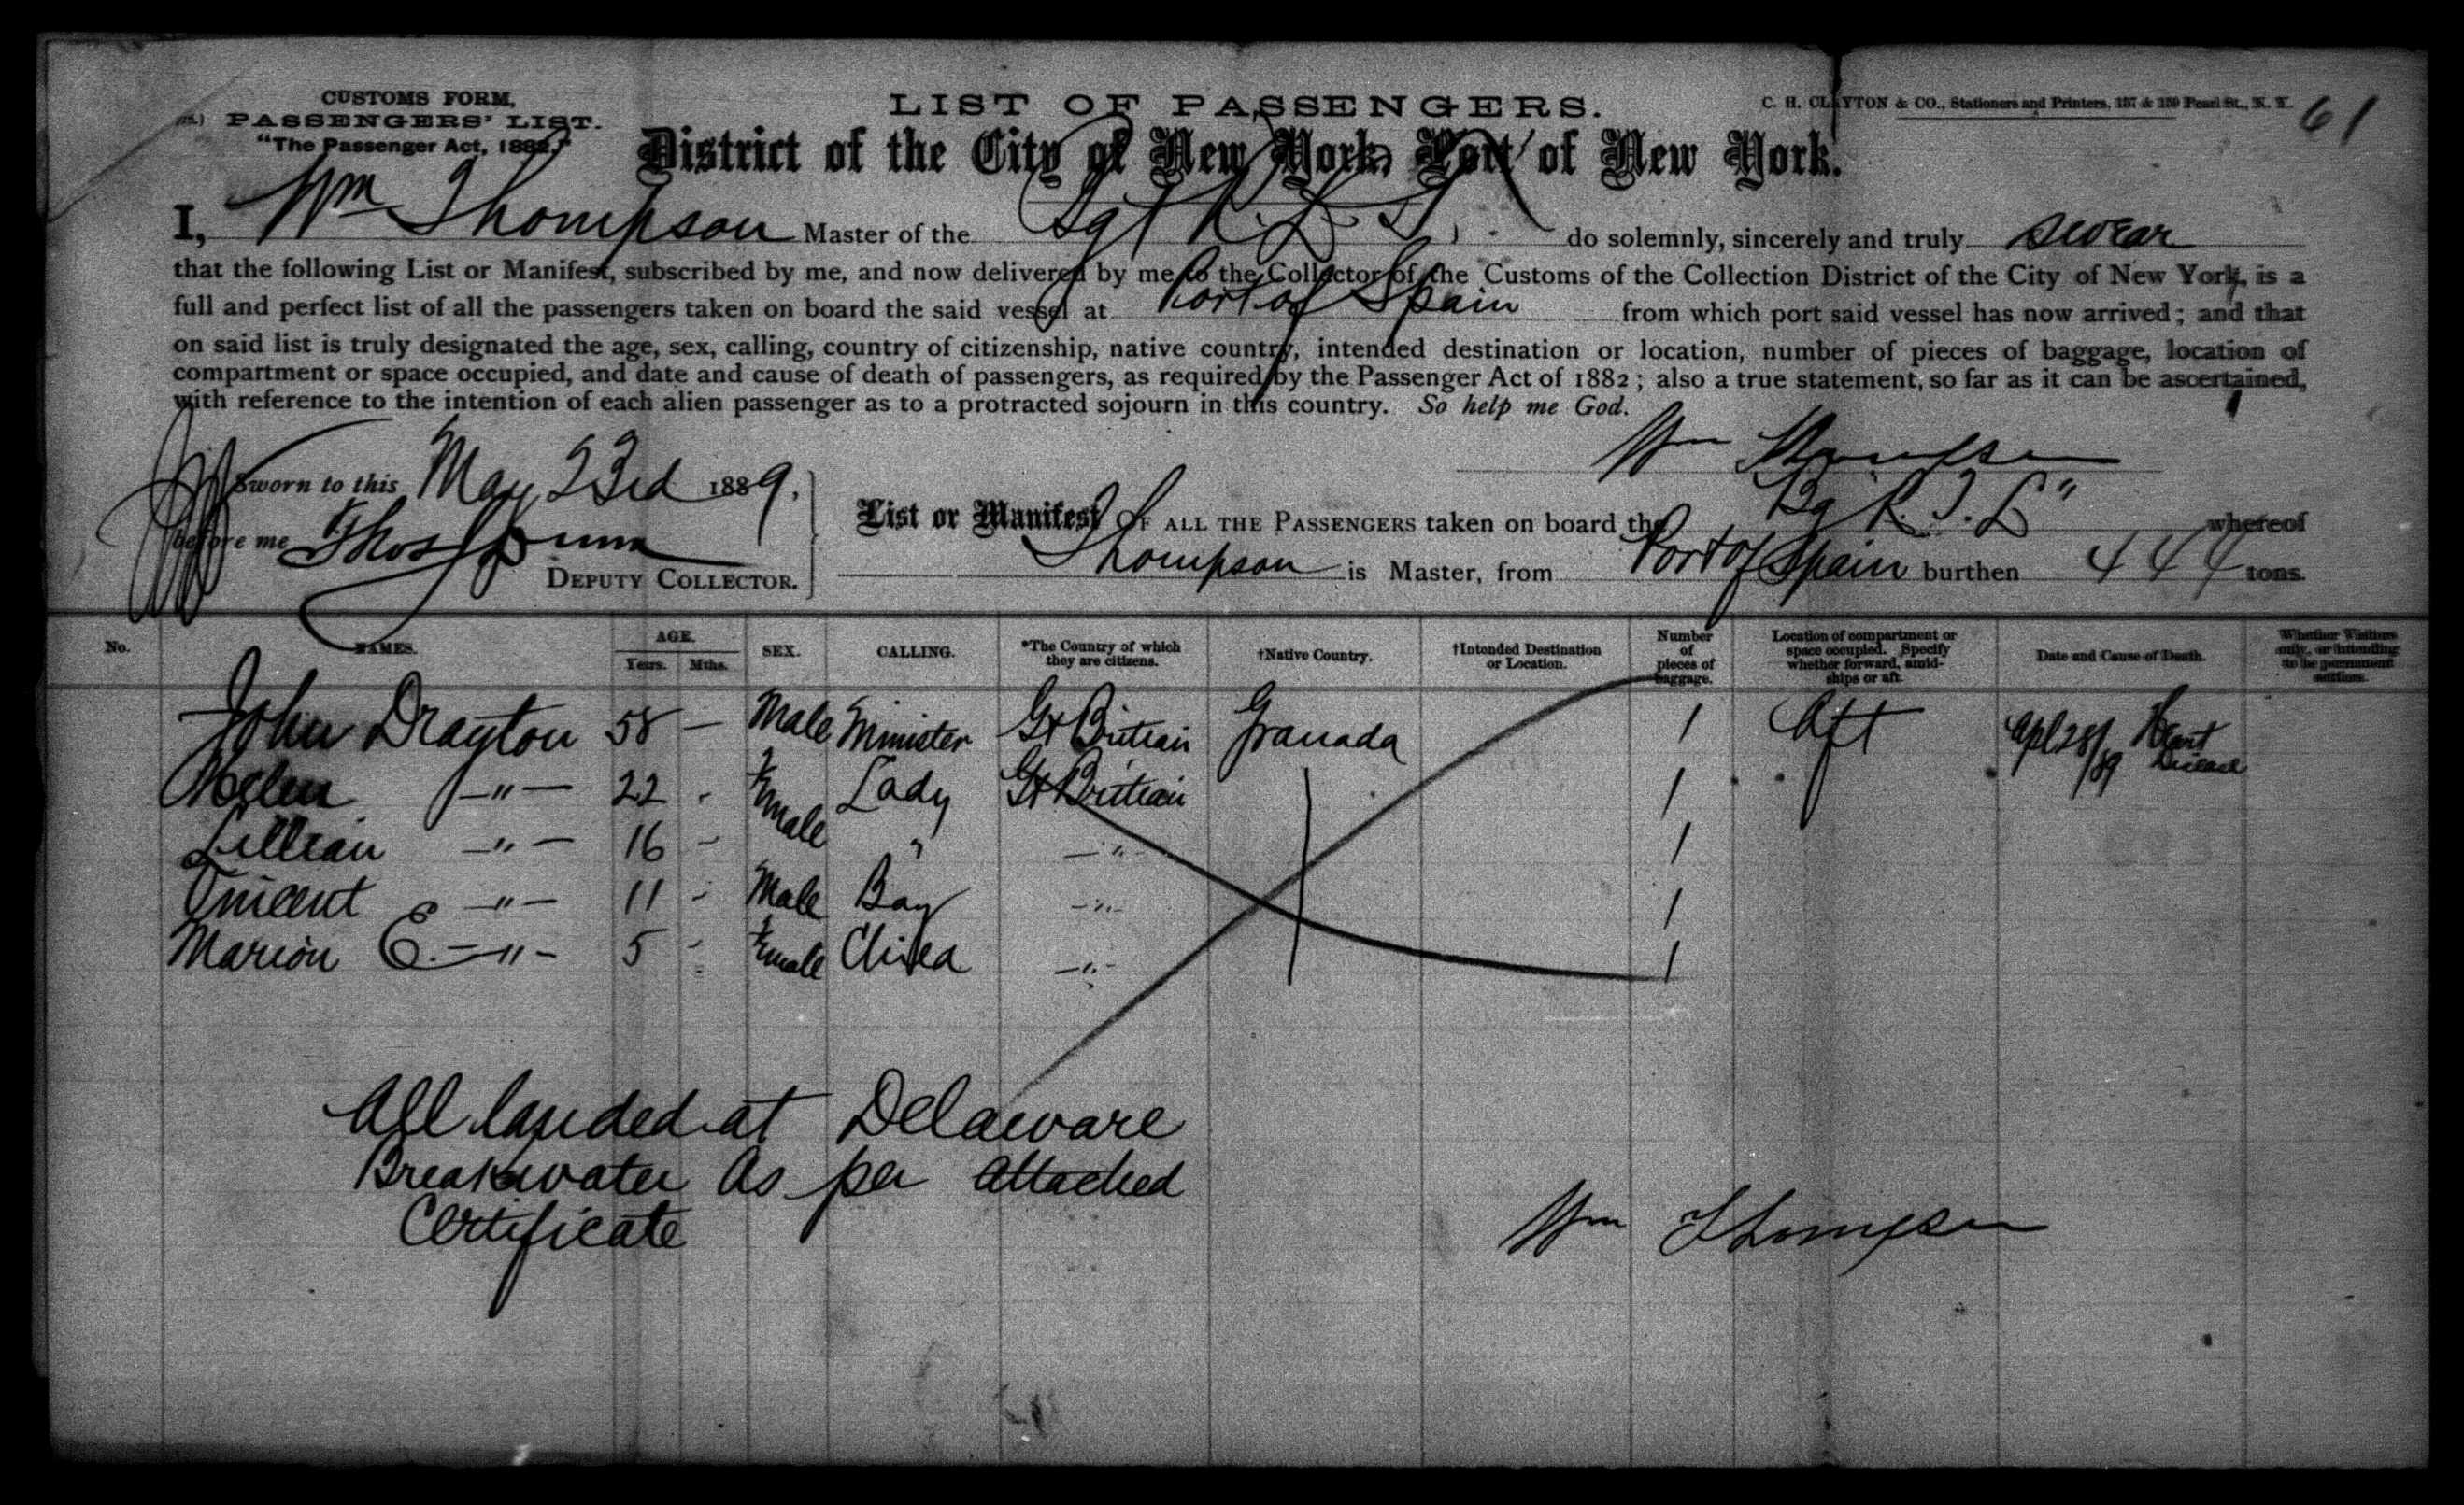 CUSTOMS FORM,
PASSENGERS' LIST.
"The Passenger Act, 1882."
LIST OF PASSENGERS.
C. H. CLAYTON & CO., Stationers and Printers, 157 & 159 Pearl St., N. Y.
61
District of the City of New York, Port of New York.
I, Wm Thompson Master of the do solemnly, sincerely and truly swear
that the following List or Manifest, subscribed by me, and now delivered by me to the Collector of the Customs of the Collection District of the City of New York, is a
full and perfect list of all the passengers taken on board the said vessel at Port of Spain from which port said vessel has now arrived; and that
on said list is truly designated the age, sex, calling, country of citizenship, native country, intended destination or location, number of pieces of baggage, location of
compartment or space occupied, and date and cause of death of passengers, as required by the Passenger Act of 1882; also a true statement, so far as it can be ascertained,
with reference to the intention of each alien passenger as to a protracted sojourn in this country. So help me God.
Wm Thompson
Sworn to this May 23rd 1889.
before me Thos
DEPUTY COLLECTOR.
List or Manifest OF ALL THE PASSENGERS taken on board the whereof
Thompson is Master, from Port of Spain burthen 444 tons.
No. NAMES. AGE. Years. Mths. SEX. CALLING. *The Country of which they are citizens. †Native Country. †Intended Destination or Location. Number of pieces of baggage. Location of compartment or space occupied. Specify whether forward, amidships or aft. Date and Cause of Death. Whether Visitors only, or intending to be permanent settlers.
John Drayton 58 — Male Minister Gt Britian Granada 1 Aft Apl 28/89 Heart Disease
Helen —"— 22 - Female Lady Gt Britian 1
Lillian —"— 16 - " —"- 1
Vincent —"— 11 - Male Boy -"- 1
Marion E. —"- 5 - Female Child —"- 1
All landed at Delaware
Breakwater as per attached
Certificate
Wm Thompson